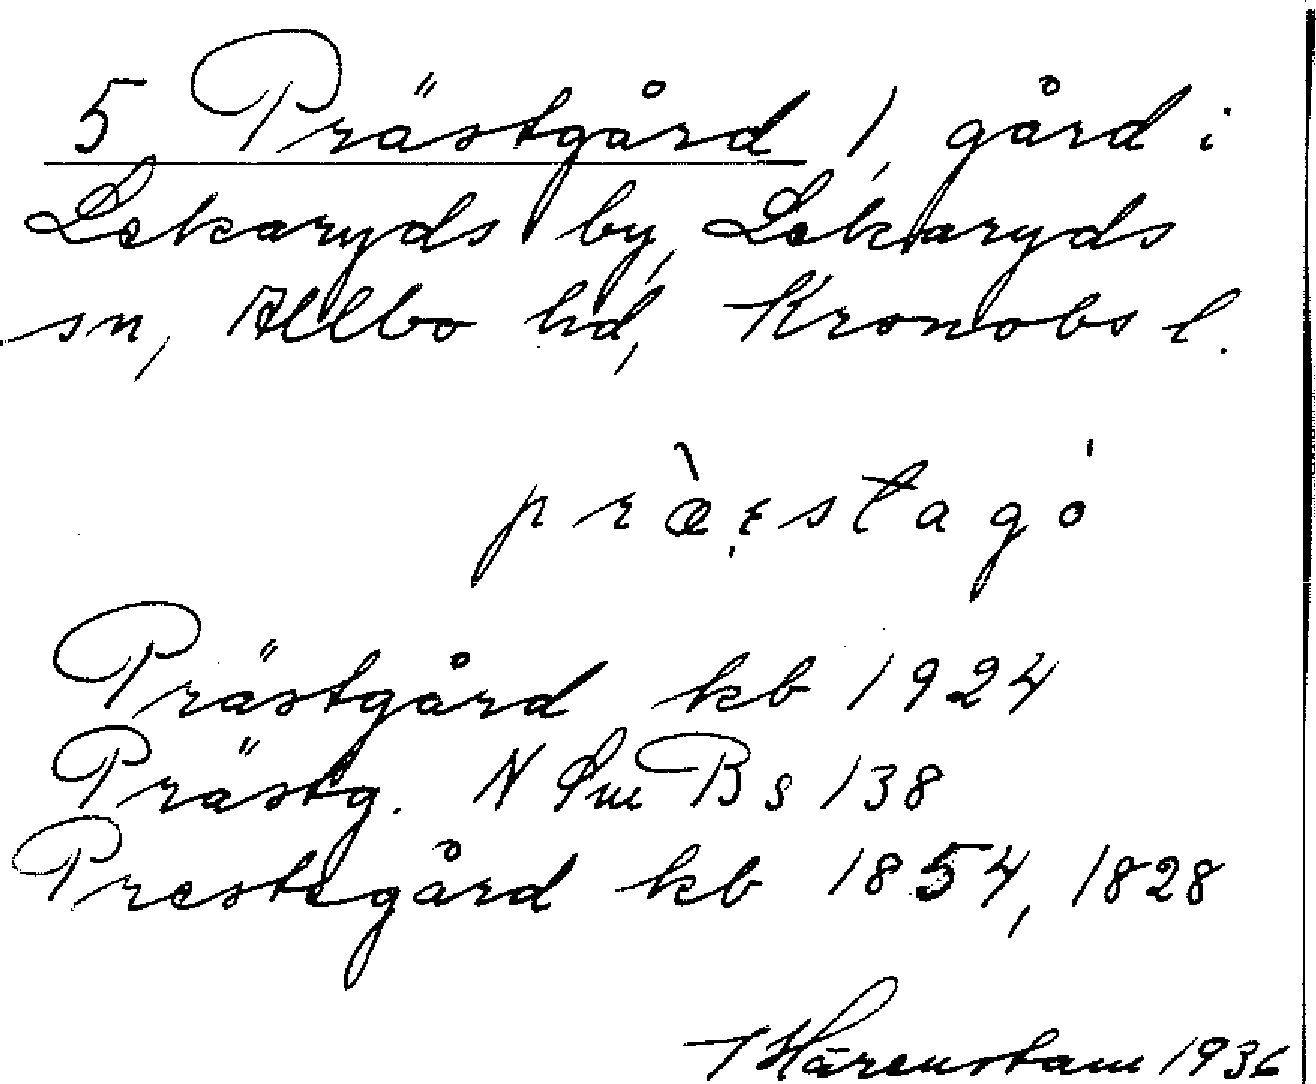 5 Prästgård 1, gård i
Lekaryds by, Lekaryds
sn, Allbo hd, Kronobs l.
Prästgård kb 1924
Prästg. N Sm B s 138
Prestegård kb 1854, 1828
Härenstam 1936